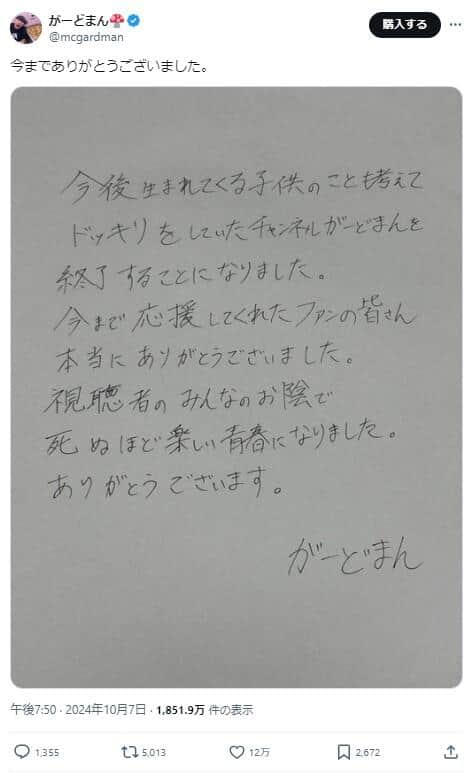 がーどまん🍄
@mcgardman
購入する
今までありがとうございました。
今後生まれてくる子供のことも考えて
ドッキリをしていたチャンネルがーどまんを
終了することになりました。
今まで応援してくれたファンの皆さん
本当にありがとうございました。
視聴者のみんなのお陰で
死ぬほど楽しい青春になりました。
ありがとうございます。
がーどまん
午後7:50 · 2024年10月7日 · 1,851.9万 件の表示
1,355 5,013 12万 2,672